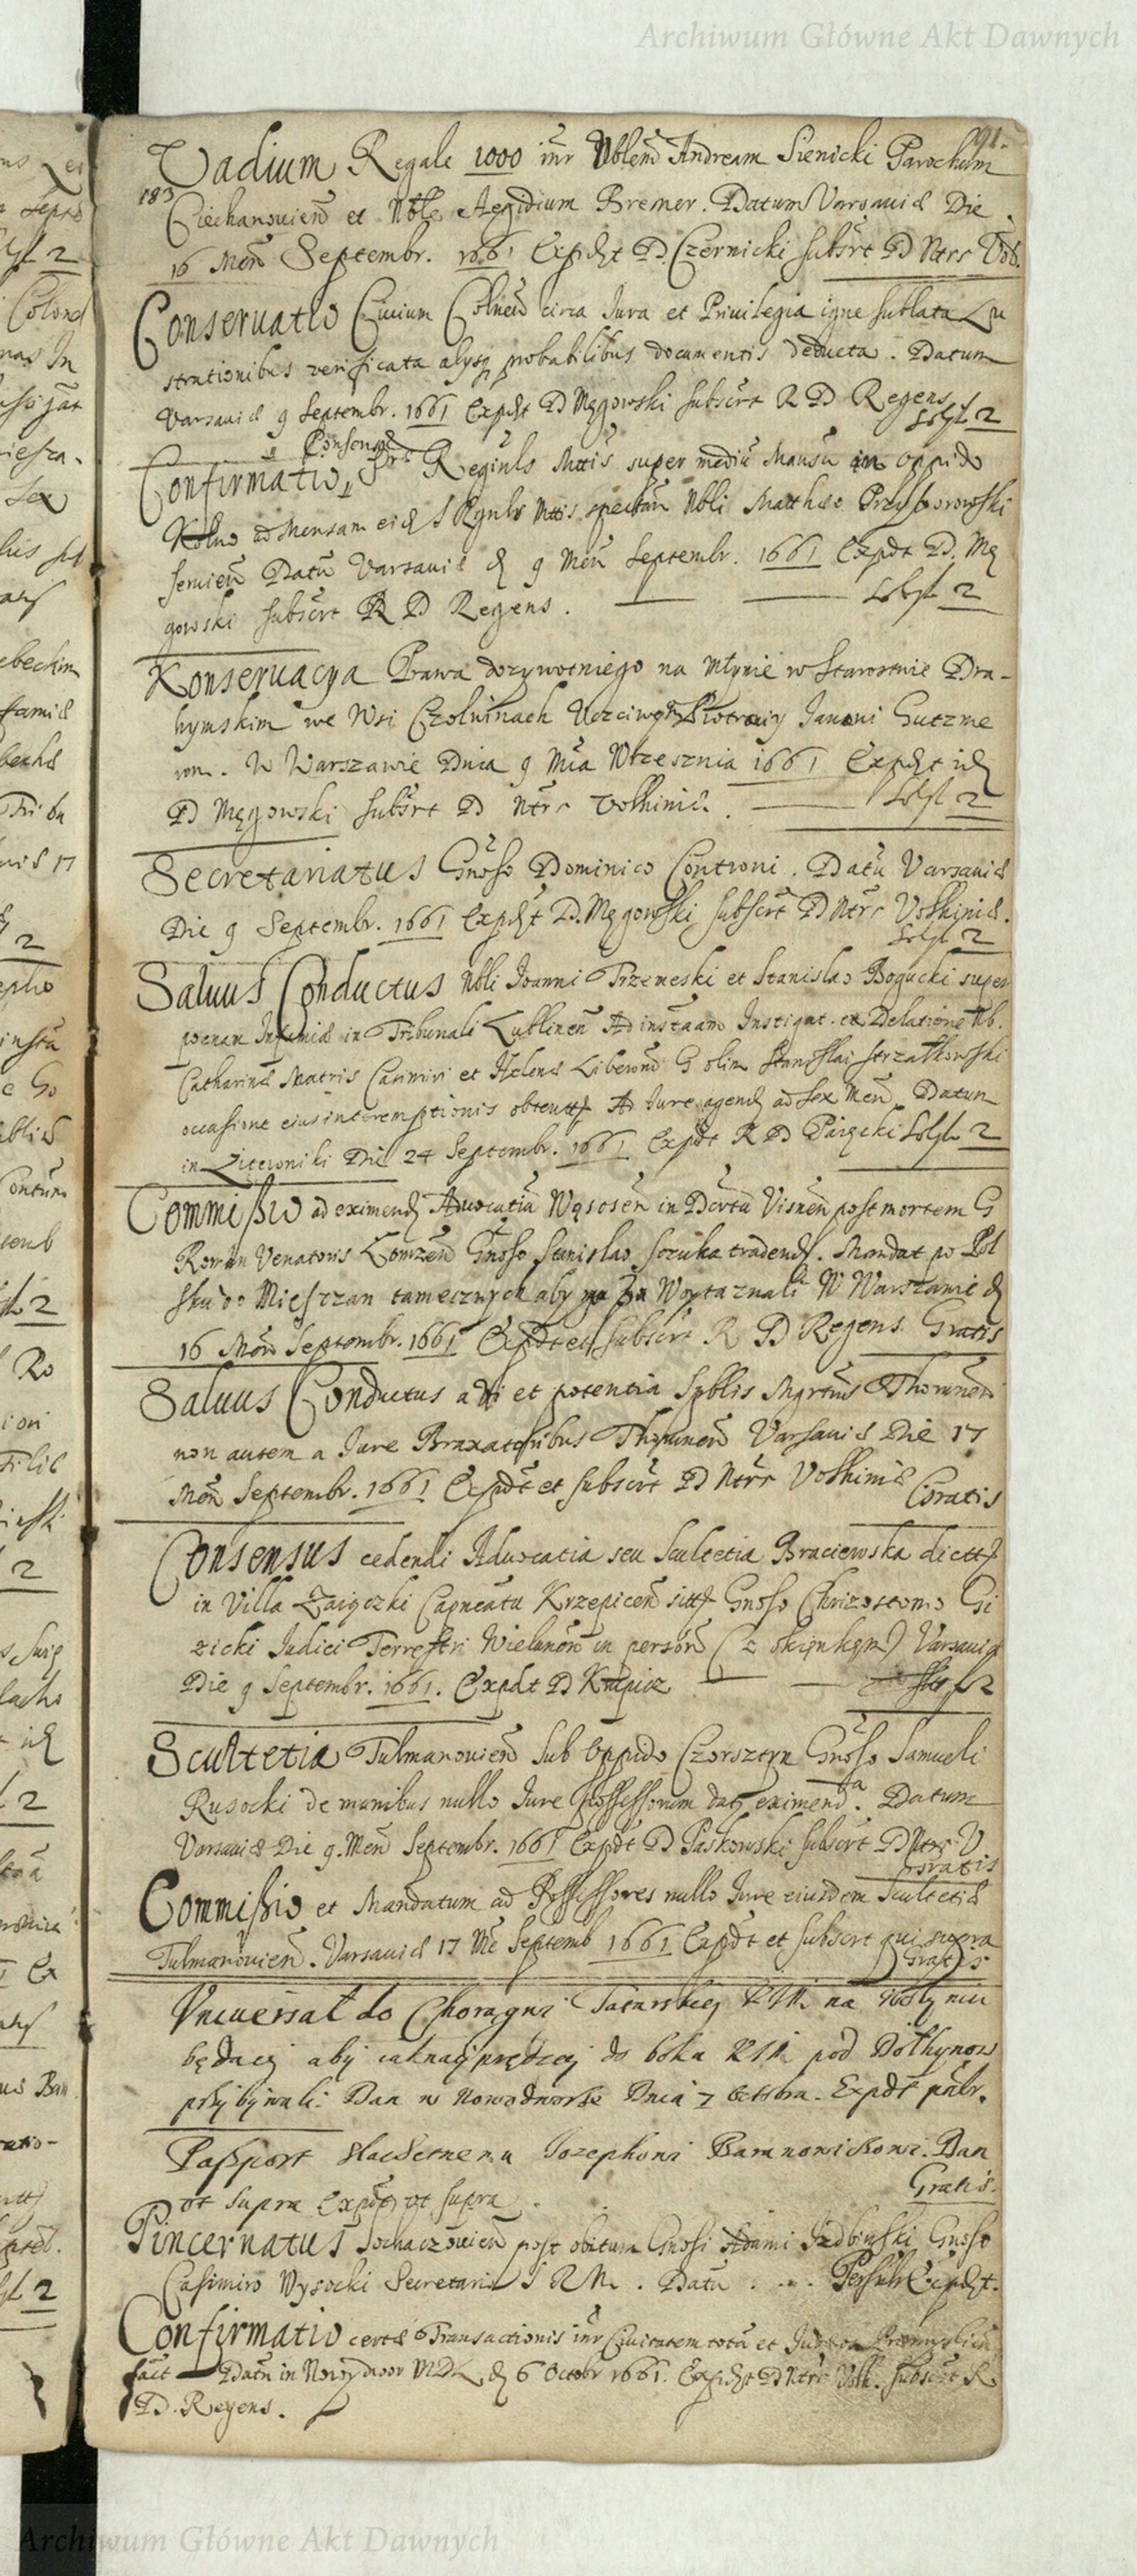 Archiwum Główne Akt Dawnych
91
Vadium Regale 1000 inr Nblem Andream Sienicki Parochum
183
Ciechanovien et Nble Aegidium Bremer. Datum Varsaviæ Die
16 Men Septembr. 1661 Expdt D. Czernicki subsrt D Ntrs Vol.
Conservatio Civium Colnen circa Jura et Privilegia igne sublata Lu
strationibus verificata alysq probabilibus documentis deducta. Datum
Varsaviæ 9 Septembr. 1661 Expdt D Męgowski subscrt R D Regens
Solgl 2
Consensus
Confirmatio Sræ Reginls Mttis super mediu Mansu in oppido
Kolno ad Mensam eide S Rgnls Mttis spectan Nbli Matthæo Przyborowski
servien Datu Varsaviæ d 9 Men Septembr. 1661 Expdt D. Mę
gowski subscrt R D Regens. Solgl 2
Konservacya Prawa dozywotniego na Młynie w Starostwie Dra-
hymskim we Wsi Czolninach Janowi Gutzme
row. W Warszawie Dnia 9 Mca Wrzesznia 1661 Expdt id
D Męgowski subsrt D Ntrs Volhiniæ. Solgl 2
Secretariatus Gnoso Dominico Controni. Datu Varsaviæ
Die 9 Septembr. 1661 Expdt D. Męgowski subscrt D Ntrs Volhiniæ.
Solgl 2
Salvus Conductus Nbli Joanni Trzemeski et Stanislao Bogucki super
poenam Infamiæ in Tribunali Lublinen Ad instaam Instigat. ex Delatione Nb.
Catharinæ Matris Casimiri et Helenæ Liberorum G olim Stanislai Strzałkowski
occasione eius interemptionis obtent Ad Jure agend ad sex Men Datum
in Die 24 Septembr. 1661 Expdt R D Piaęcki Solgl 2
Commissio ad eximend Advocatia Wąsosen in Dcrtu Visnen post mortem G
Rowin Venatoris Lomzen Gnoso Stanislao Sczuka tradend. Mandat po Pol
sku do Mieszczan tamecznych aby go za Woyta znali W Warszawie d
16 Men Septembr. 1661 Expdt et subscrt R D Regens Gratis
Salvus Conductus a Vi et potentia Spblis Mgrtus Thorunen
non autem a Jure Braxatoribus Thorunen Varsaviæ Die 17
Men Septembr. 1661 Expdt et subscrt D Ntrs Volhiniæ Gratis
Consensus cedendi Advocatia seu Scultetia Braciewska dictt
in Villa Zaięczki Capneatu Krzepicen sitt Gnoso Chrizostomo Gi
zicki Judici Terrestri Wielunen in person (z okięnkąm) Varsaviæ
Die 9 Septembr. 1661. Expdt D Krupicz 2
Scultetia Tulmanovien sub Oppido Czorsztyn Gnoso Samueli
Rusocki de manibus nullo Jure Possessorum datq eximenda. Datum
Varsaviæ Die 9. Men Septembr. 1661 Expdt D Paskowski subscrt D Ntrs V
Gratis
Commissio et Mandatum ad Possessores nullo Jure eiusdem Scultetiæ
Tulmanovien. Varsaviæ 17 Me Septemb 1661 Expdt et subscrt qui supra
Gratis
Vniuersał do Choragwi Tatarskiej KJM na Wołyniu
będacej aby iaknayprędzey do boku KJM pod Dołhynow
przybywali. Dan w Nowodworze Dnia 7 8ctobra. Expdt
Passport Josephowi Baranowiczowi. Dan
ut supra Expdt ut supra. Gratis.
Pincernatus Sochaczovien post obitum Gnosi Adami Izdbinski Gnoso
Casimiro Wysocki Secretario S R M. Datu . . . Expdt.
Confirmatio certæ Transactionis inr Civitatem tota et Judæos Premyslien
fact Datu in Nowy dwor MDL d 6 Octobr 1661. Expdt D Ntrs Volh. subscrt R
D. Regens.
Archiwum Główne Akt Dawnych